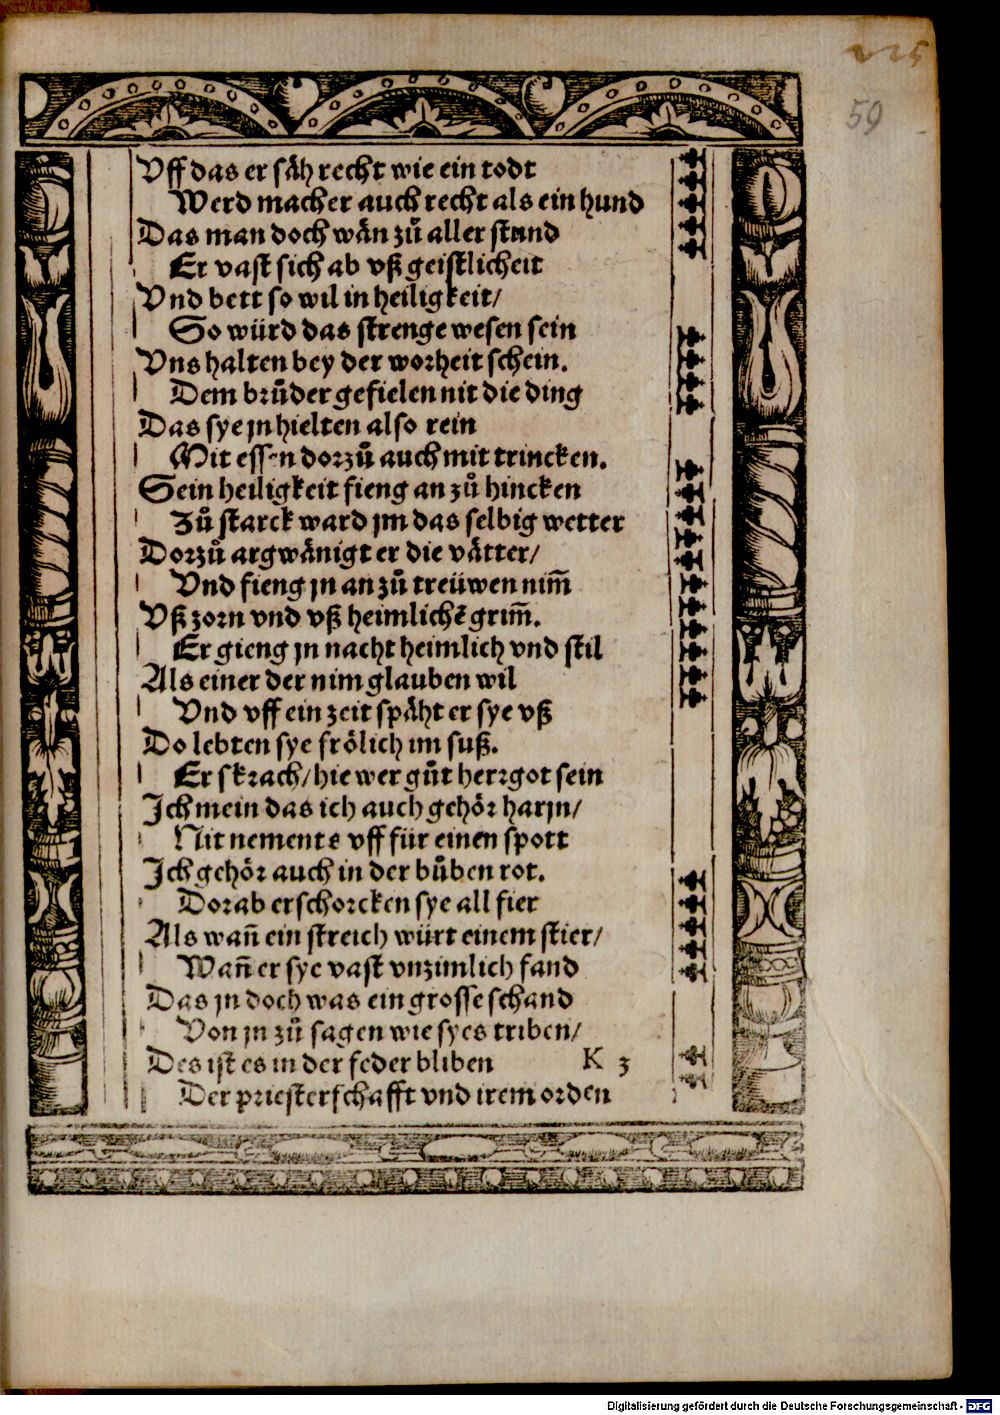 225
59
Vff das er säh recht wie ein todt
Werd macher auch recht als ein hund
Das man doch wän zů aller stund
Er vast sich ab vß geistlicheit
Vnd bett so wil in heiligkeit/
So würd das strenge wesen sein
Vns halten bey der worheit schein.
Dem brůder gefielen nit die ding
Das sye jn hielten also rein
Mit essen dorzů auch mit trincken.
Sein heiligkeit fieng an zů hincken
Zů starck ward jm das selbig wetter
Dorzů argwänigt er die vätter/
Vnd fieng jn an zů treüwen nim̄
Vß zorn vnd vß heimlichē grim̄.
Er gieng jn nacht heimlich vnd stil
Als einer der nim glauben wil
Vnd vff ein zeit späht er sye vß
Do lebten sye frölich im suß.
Er sprach/ hie wer gůt herrgot sein
Jch mein das ich auch gehör harjn/
Nit nements vff für einen spott
Jch gehör auch in der bůben rot.
Dorab erschorcken sye all fier
Als wan̄ ein streich würt einem stier/
Wan̄ er sye vast vnzimlich fand
Das jn doch was ein grosse schand
Von jn zů sagen wie syes triben/
Des ist es in der feder bliben K 3
Der priesterschafft vnd irem orden
Digitalisierung gefördert durch die Deutsche Forschungsgemeinschaft - DFG